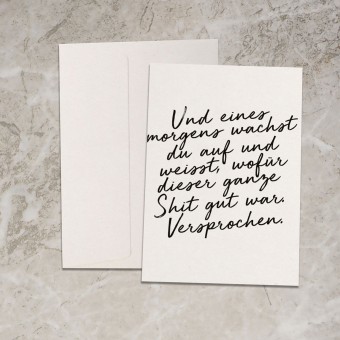 Und eines
morgens wachst
du auf und
weisst, wofür
dieser ganze
Shit gut war.
Versprochen.